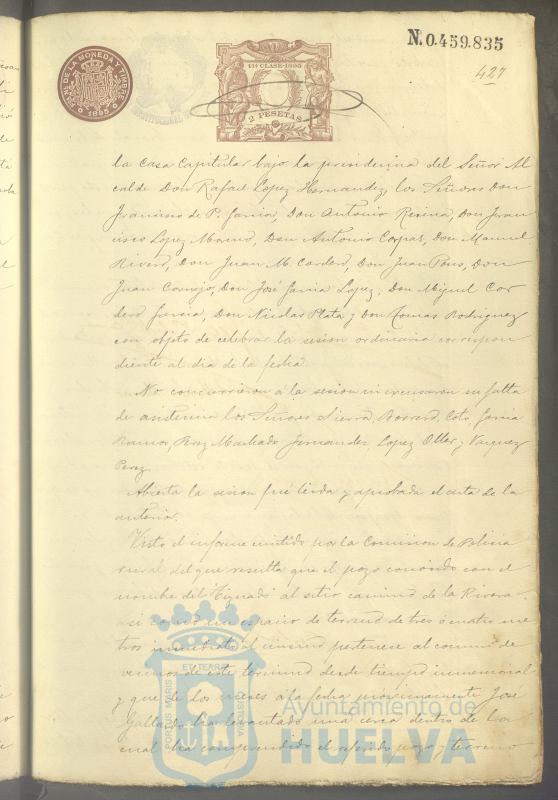 N. 0.459.835
427
FÁB. DE LA MONEDA Y TIMBRE
1895
11ª CLASE-1895
2 PESETAS
la Casa Capitular bajo la presidencia del Señor Al
calde Don Rafael Lopez Hernandez, los Señores Don
Francisco de P. Garcia, Don Antonio Rivera, Don Fran
cisco Lopez Moreno, Don Antonio Corpas, Don Manuel
Rivero, Don Juan M. Cordero, Don Juan Pons, Don
Juan Cornejo, Don José Garcia Lopez, Don Miguel Cor
dero Garcia, Don Nicolas Plata y Don Tomas Rodriguez
con objeto de celebrar la sesion ordinaria correspon
diente al dia de la fecha.
No concurrieron á la sesion ni excusaron su falta
de asistencia los Señores Sierra, Borrero, Coto, Garcia
Ramos, Perez Machado, Fernandez, Lopez Oller y Vazquez
Perez.
Abierta la sesion fué leida y aprobada el acta de la
anterior.
Visto el informe emitido por la Comision de Policia
rural del que resulta que el pozo conocido con el
nombre del Tejado al sitio camino de la Rivera
asi como un espacio de terreno de tres ó cuatro me
tros inmediato al mismo pertenece al comun de
vecinos de este término desde tiempo inmemorial
y que de dos meses a la fecha proximamente José
Gallardo ha levantado una cerca dentro de la
cual ha comprendido el referido pozo y terreno
PORTUS MARIS ET TERRAE CUSTODIA
Ayuntamiento de
HUELVA